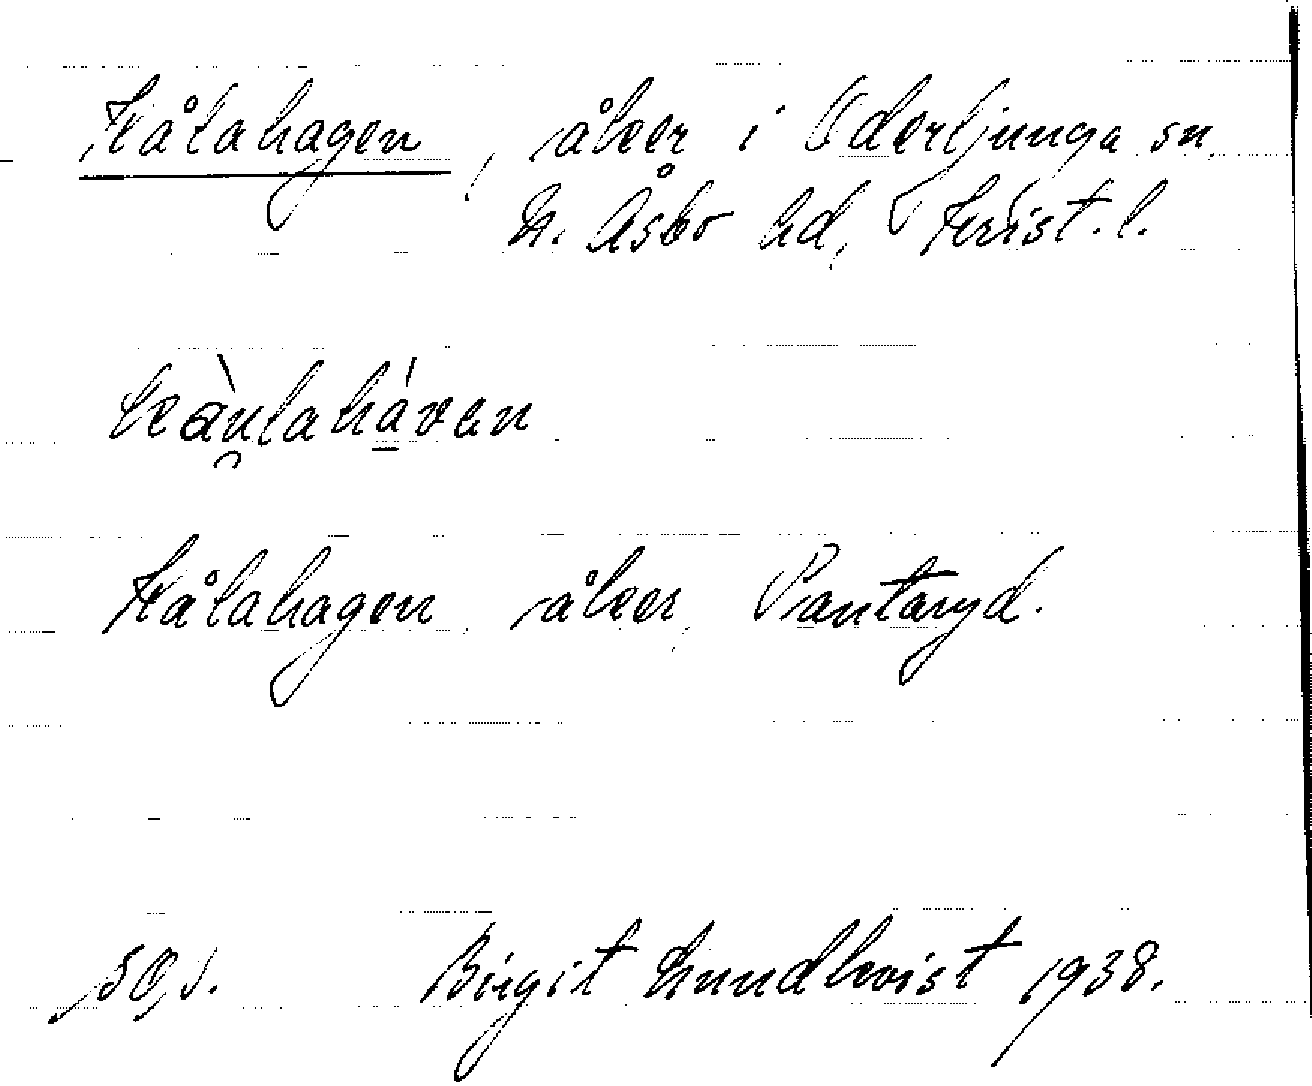 Kålahagen, åker i Oderljunga sn.
N. Åsbo hd, Krist. l.
kàu̯lahá̱van
Kålahagen, åker, Pantaryd.
Birgit Lundkvist 1938.